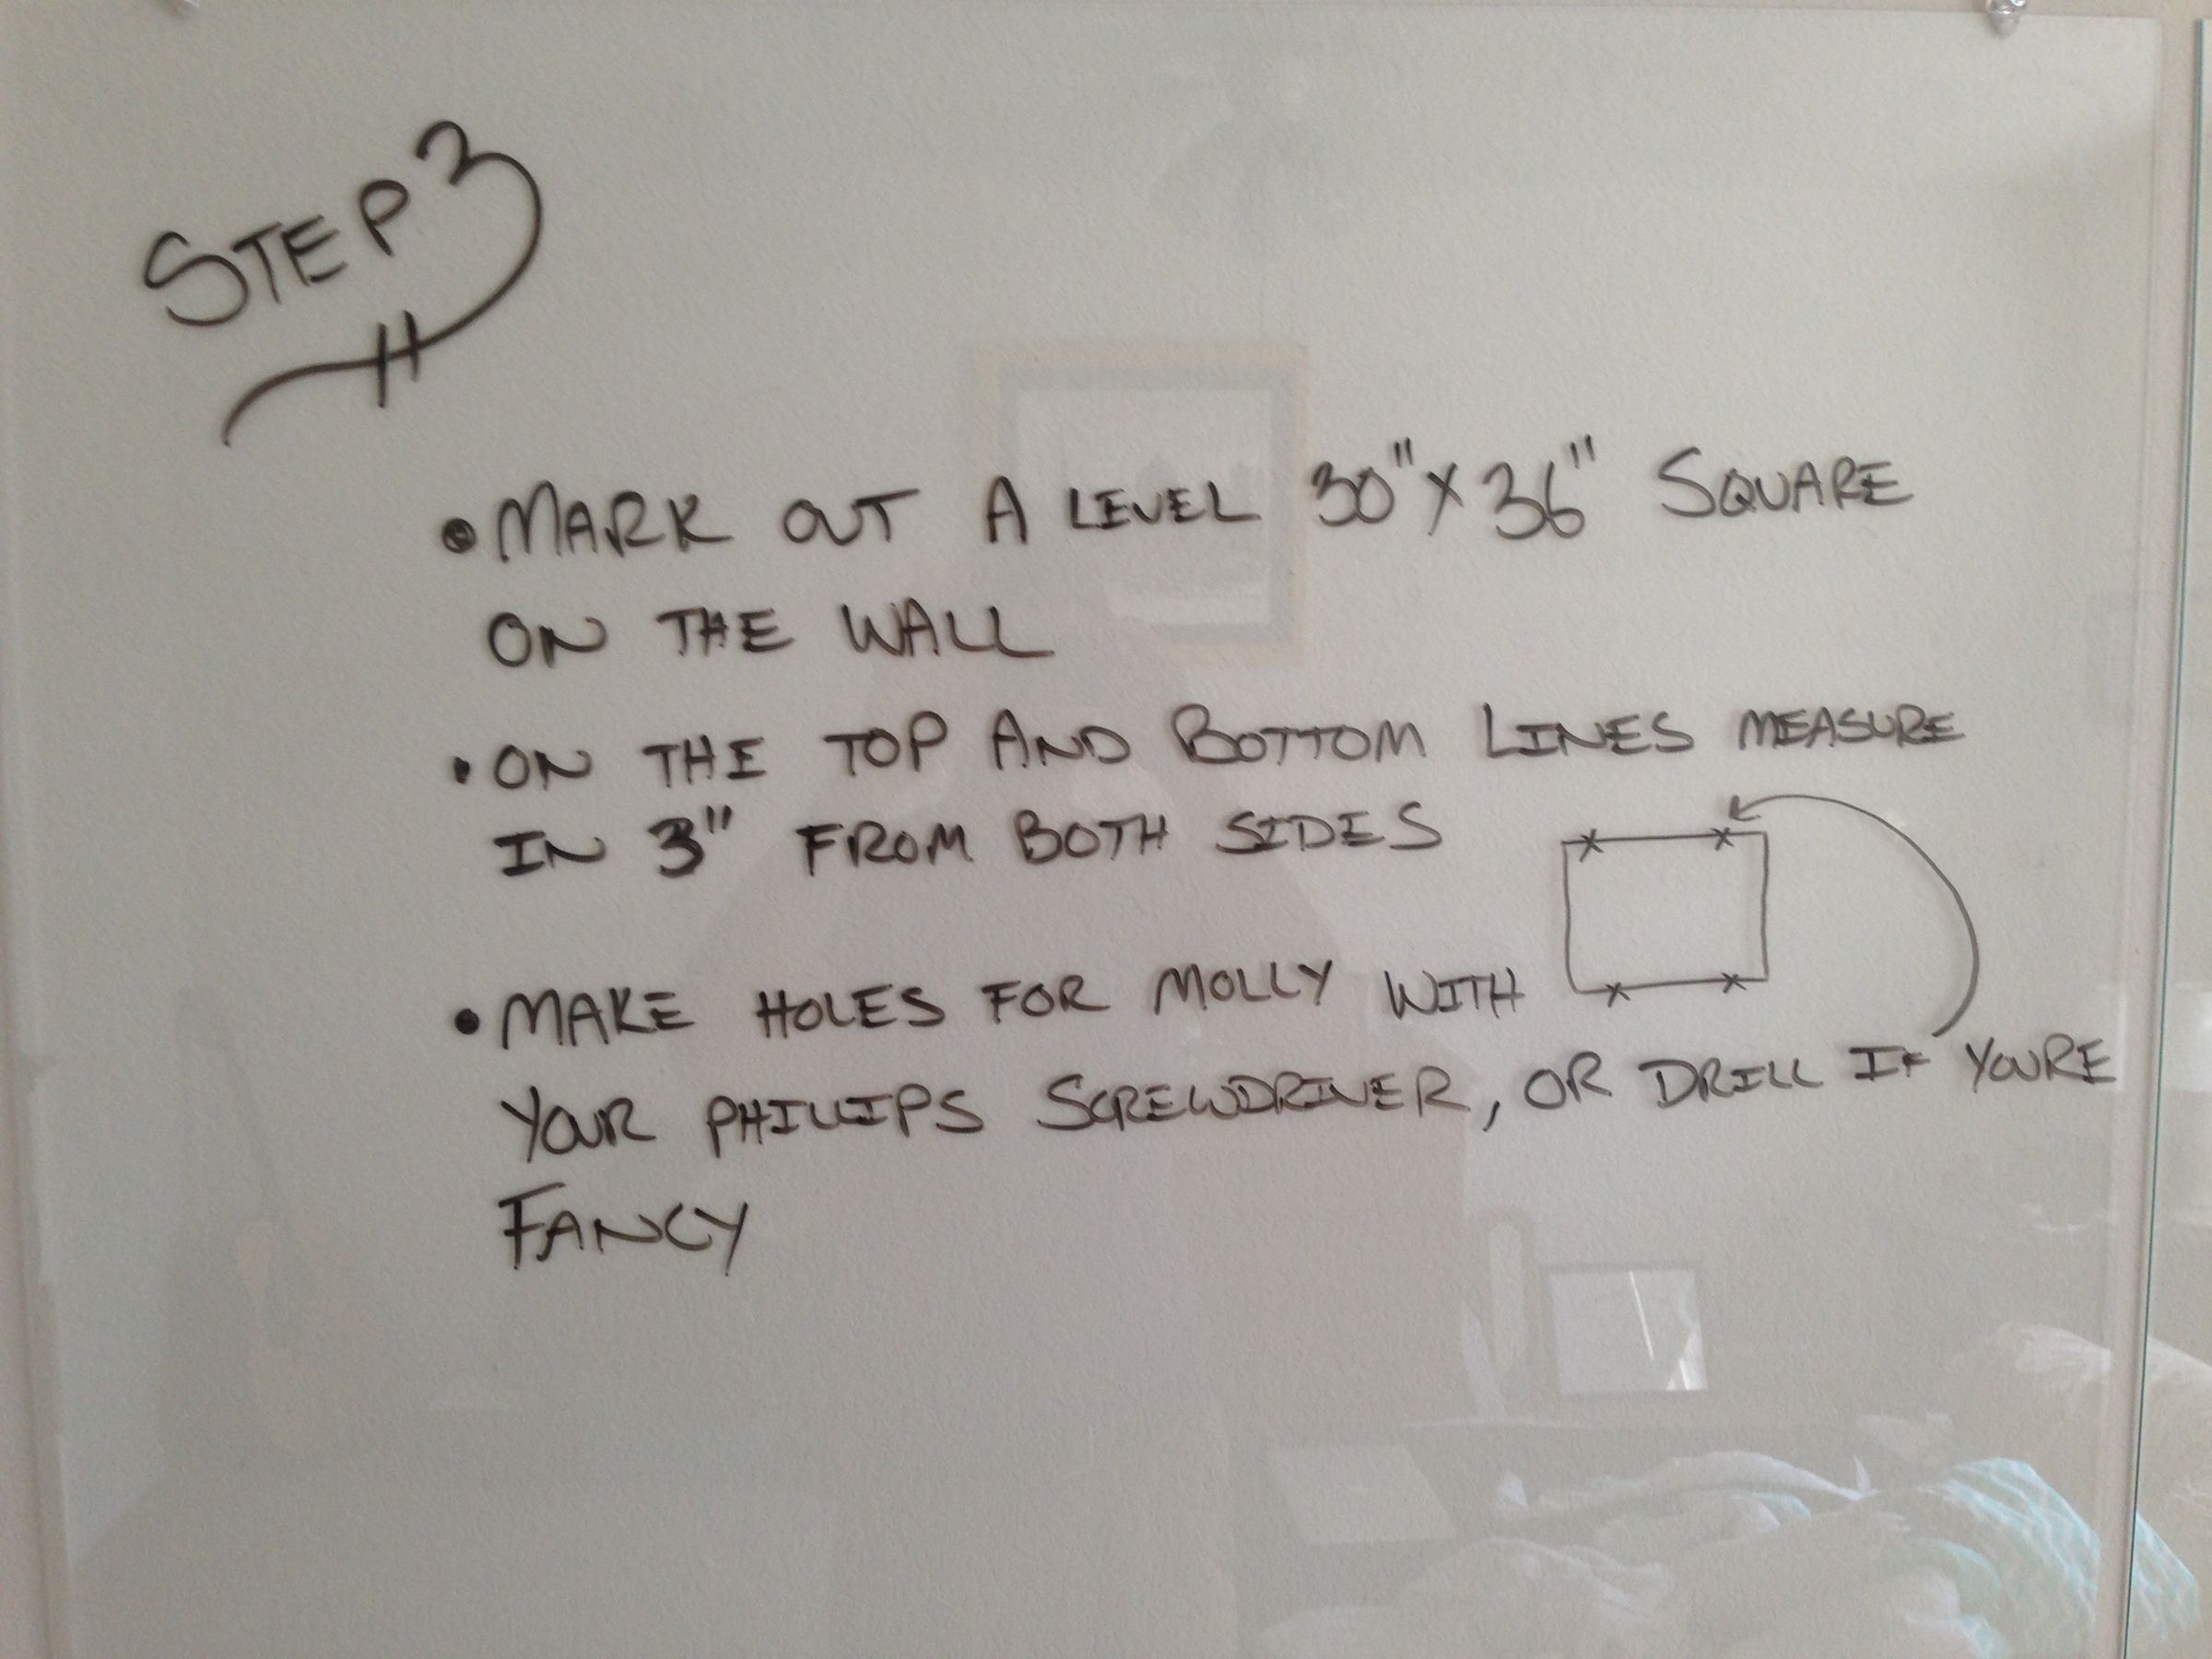 STEP 3
• MARK OUT A LEVEL 30" X 36" SQUARE
ON THE WALL
• ON THE TOP AND BOTTOM LINES MEASURE
IN 3" FROM BOTH SIDES
• MAKE HOLES FOR MOLLY WITH
YOUR PHILLIPS SCREWDRIVER, OR DRILL IF YOURE
FANCY